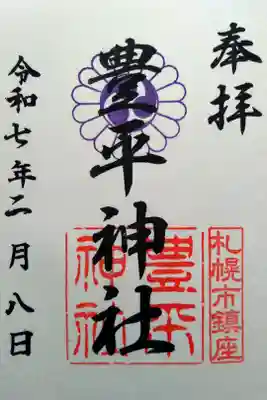 奉拝
札幌市鎮座
豊平神社
豊平神社
令和七年二月八日